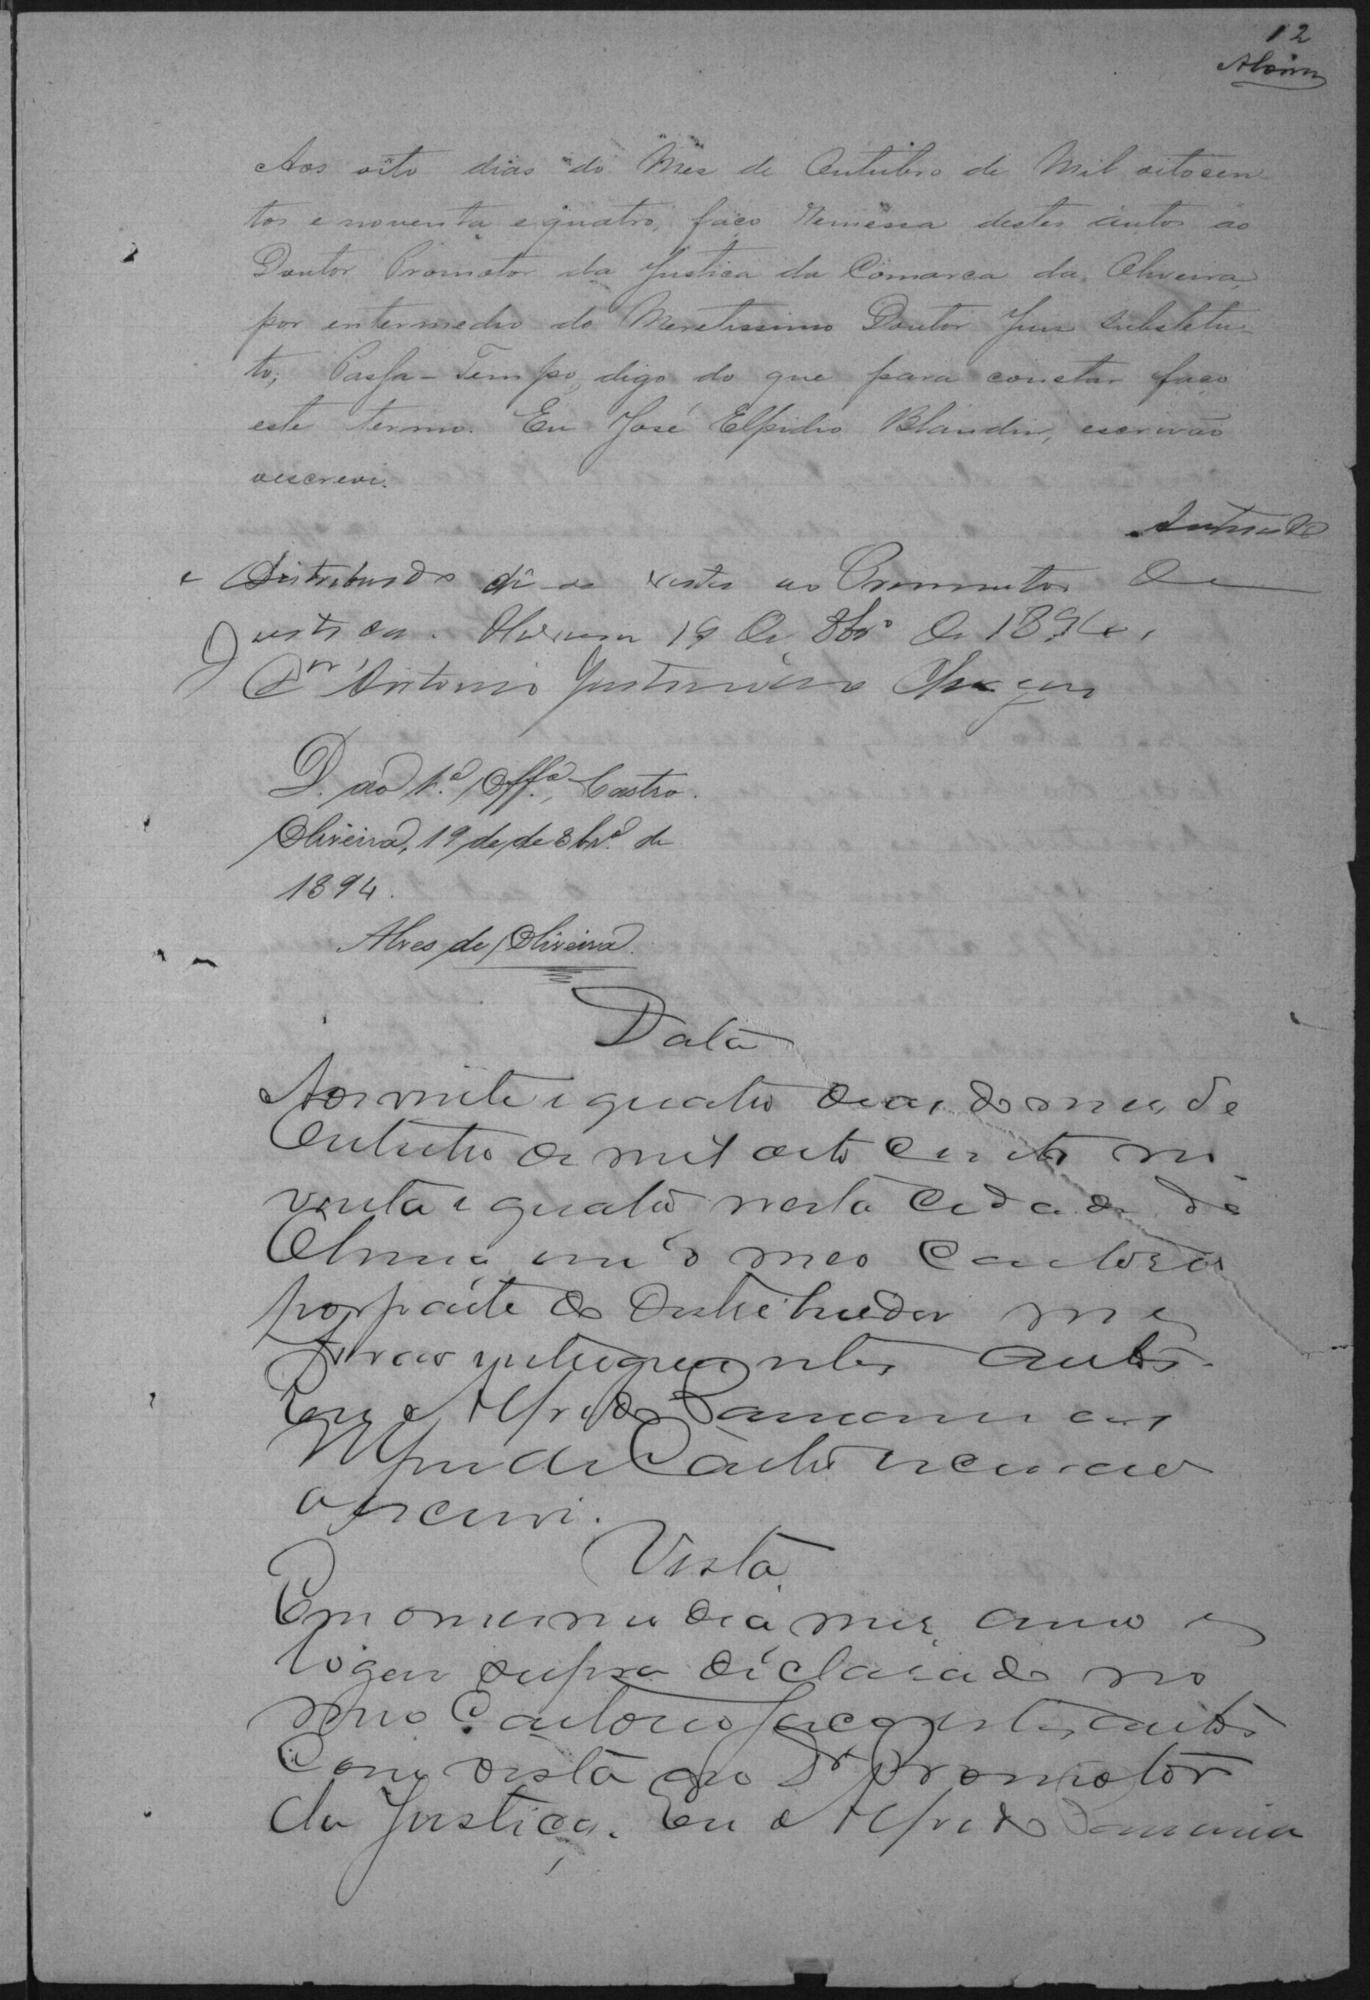 12
Aos oito dias do Mes de Outubro de Mil oitocen
tos e noventa e quatro, faço remessa destes autos ao
Doutor Promotor da Justica da Comarca da Oliveira,
por entermedio do Meretissimo Doutor Juis substetu-
to; Passa-Tempo, digo do que para constar faço
este termo. Eu José Elpidio Blandin, escrivão
oescrevi.
Autuado
e Distribuido dê-se vista ao Promutor de
Justica. Oliveira 19 de 8bro de 1894.
Dr Antonio Justiniano Chagas
D. ao 1.º Off.º, Castro.
Oliveira, 19 de de 8br.º de
1894.
Alves de Oliveira.
Data
Aos vinte e quatro dias do mes de
Outubro de mil oito centos no
venta e quatro nesta cidade de
Oliveira em o meo Cartorio
por parte do Distribuidor me
forão entregues estes autos.
Eu Alfredo
de Castro escrivão
o escrevi.
Vista
Em o mesmo dia mes, anno e
logar supra declarado no
meo Cartorio faço estes autos
com vista ao Dr Promotor
da Justiça. Eu Alfredo